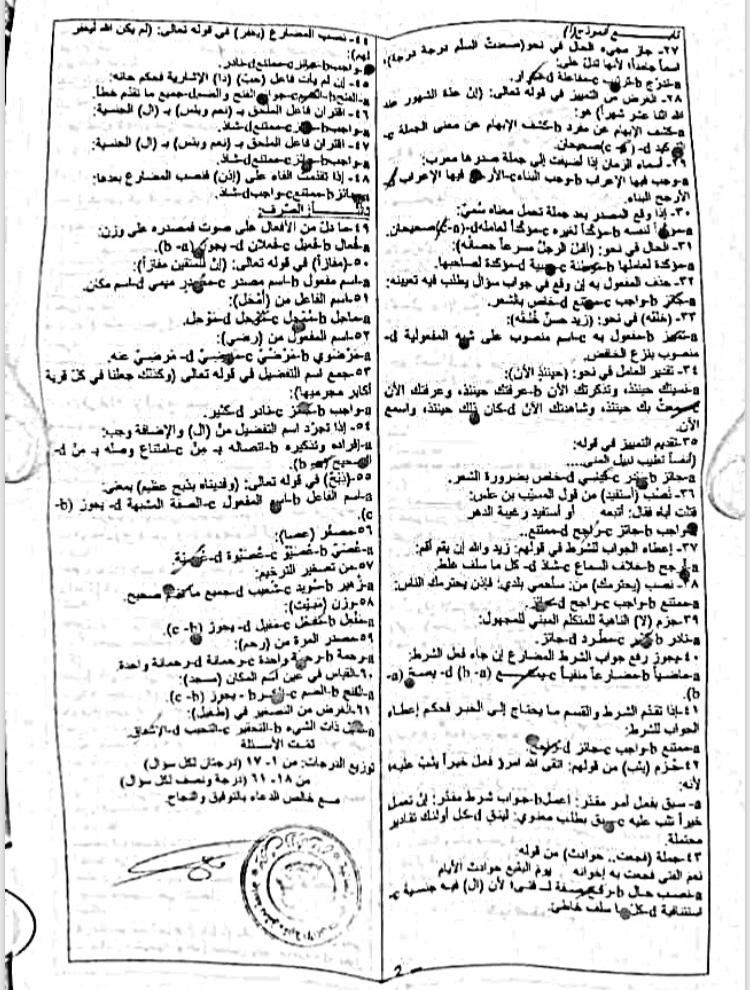 ٢٧- جاز مجيء الحال في نحو(صعدتُ السلّم درجة درجة)،
اسماً جامداً؛ لأنها تدلّ على:
a-تدرّج b-ترتيب c-مفاعلة d-
٢٨- الغرض من التمييز في قوله تعالى: (إنّ عدة الشهور عند
الله اثنا عشر شهراً) هو:
a-كشف الإبهام عن مفرد b-كشف الإبهام عن معنى الجملة c-
صحيحان.
٢٩- أسماء الزمان إذا أضيفت إلى جملة صدرها معرب:
a-وجب فيها الإعراب b-وجب البناء c-الأرجح فيها الإعراب d-
الأرجح البناء.
٣٠- إذا وقع المصدر بعد جملة تحمل معناه سُميّ:
a-مؤكداً لنفسه b-مؤكداً لغيره c-مؤكداً لعامله d-(a-c)صحيحان.
٣١- الحال في نحو: (أقبل الرجلُ مسرعاً حصانُه):
a-مؤكدة لعاملها b-موطئة c-سببية d-مؤكدة لصاحبها.
٣٢- حذف المفعول به إن وقع في جواب سؤال يطلب فيه تعيينه:
a-جائز b-واجب c-ممتنع d-خاص بالشعر.
٣٣- (خلقَه) في نحو: (زيد حسنٌ خُلقَه):
a-تمييز b-مفعول به c-اسم منصوب على شبه المفعولية d-
منصوب بنزع الخافض.
٣٤- تقدير العامل في نحو: (حينئذٍ الآن):
a-نسيتك حينئذ، وتذكرتك الآن b-عرفتك حينئذ، وعرفتك الآن
c-سمعت بك حينئذ، وشاهدتك الآن d-كان ذلك حينئذ، واسمع
الآن.
٣٥-تقديم التمييز في قوله:
(أنفساً تطيب بنيل المنى.....
a-جائز b-نادر c-قياسي d-خاص بضرورة الشعر.
٣٦- نَصْب (أستفيد) من قول المسيّب بن علس:
قتلت أباه فقال: أتبعه أو أستفيد رغيبة الدهر
a-واجب b-جائز c-راجح d-ممتنع..
٣٧- إعطاء الجواب للشرط في قولهم: زيد والله إن يقم أقم:
a-أرجح b-خلاف السماع c-شاذ d- كل ما سلف غلط.
٣٨- نصب (يحترمك) من: سأحمي بلدي؛ فإذن يحترمك الناس:
a-ممتنع b-واجب c-راجح d-جائز.
٣٩- جزم (لا) الناهية للمتكلم المبني للمجهول:
a-نادر b- c-مطرد d-جائز.
٤٠- يجوز رفع جواب الشرط المضارع إن جاء فعل الشرط:
a-ماضياً b-مضارعاً منفياً c- (a-b) d- (a-
b).
٤١-إذا تقدّم الشرط والقسم ما يحتاج إلى الخبر فحكم إعطاء
الجواب للشرط:
a-ممتنع b-واجب c-جائز d-راجح
٤٢- جُزم (يثب) من قولهم: اتقى الله امرؤ فعل خيراً يُثب عليه؛
لأنه:
a- سبق بفعل أمر مقدّر: اعمل b-جواب شرط مقدّر: إنْ تعمل
خيراً تثب عليه c-سبق بطلب معنوي: ليتق d-كل أولئك تقادير
محتملة.
٤٣-جملة (فجعت.. حوادث) من قوله
نعم الفتى فجعت به إخوانه يوم البقيع حوادث الأيام
a-نصب حال b-رفع صفة لـ فتى؛ لأن (ال) فيه جنسية c-
استئنافية d-كل ما سلف خاطئ.
٤٤- نصب المضارع (يغفر) في قوله تعالى: (لم يكن الله ليغفر
لهم):
a-واجب b-جائز c-ممتنع d-نادر.
٤٥- إن لم يأت فاعل (حبّ) (ذا) الإشارية فحكم حائه:
a-الفتح b-الضم c-جواز الفتح والضم d-جميع ما تقدّم خطأ.
٤٦- اقتران فاعل الملحق بـ (نعم وبئس) بـ (ال) الجنسية:
a-واجب b-جائز c-ممتنع d-شاذ.
٤٧- اقتران فاعل الملحق بـ (نعم وبئس) بـ (ال) الجنسية:
a-واجب b-جائز c-ممتنع d-شاذ.
٤٨- إذا تقدّمت الفاء على (إذن) فنصب المضارع بعدها:
a-جائز b-ممتنع c-واجب d-شاذ.
الصرف:
٤٩-ما دلّ من الأفعال على صوت فمصدره على وزن:
a-فُعال b-فعيل c-فعلان d- يجوز (a-b).
٥٠-(مفازاً) في قوله تعالى: (إنّ للمتقين مفازاً):
a-اسم مفعول b-اسم مصدر c-مصدر ميمي d-اسم مكان.
٥١-اسم الفاعل من (أمْحَل):
a-ماحل b-مُمْحِل c- d-مُوْحل.
٥٢-اسم المفعول من (رضي):
a-مَرْضوي b-مُرْضيّ c-مَرْضيّ d- مَرضيّ عنه.
٥٣-جمع اسم التفضيل في قوله تعالى (وكذلك جعلنا في كلّ قرية
أكابر مجرميها):
a-واجب b-جائز c-نادر d-كثير.
٥٤- إذا تجرّد اسم التفضيل من (ال) والإضافة وجب:
a-إفراده وتذكيره b-اتصاله بـ مِنْ c-امتناع وصله بـ مِنْ d-
الصحيح (a-b).
٥٥-(ذِبْح) في قوله تعالى: (وفديناه بذبح عظيم) بمعنى:
a-اسم الفاعل b-اسم المفعول c-الصفة المشبهة d- يجوز (b-
c).
٥٦-مصغّر (عصا):
a-عُصَيّ b-عُصَيْو c-عُصَيْوة d-عُصَيّة
٥٧-من تصغير الترخيم:
a-زُهير b-سُويد c-شُعيب d-جميع ما تقدّم صحيح.
٥٨-وزن (مَبيت):
a-مَفْعِل b-مَفْعَل c-مَفيل d- يجوز (b-c).
٥٩-مصدر المرة من (رحم):
a-رحمة b-رحمة واحدة c-رحمانة d-رحمانة واحدة
٦٠-القياس في عين اسم المكان (مسجد):
a-الفتح b-الضم c-الكسر d- يجوز (b-c).
٦١-الغرض من التصغير في (طُفيل):
a-تقليل ذات الشيء b-التحقير c-التحبب d-الإشفاق.
تمت الأسئلة
توزيع الدرجات: من ١-١٧ (درجتان لكل سؤال)
من ١٨-٦١ (درجة ونصف لكل سؤال)
مع خالص الدعاء بالتوفيق والنجاح.
2 -